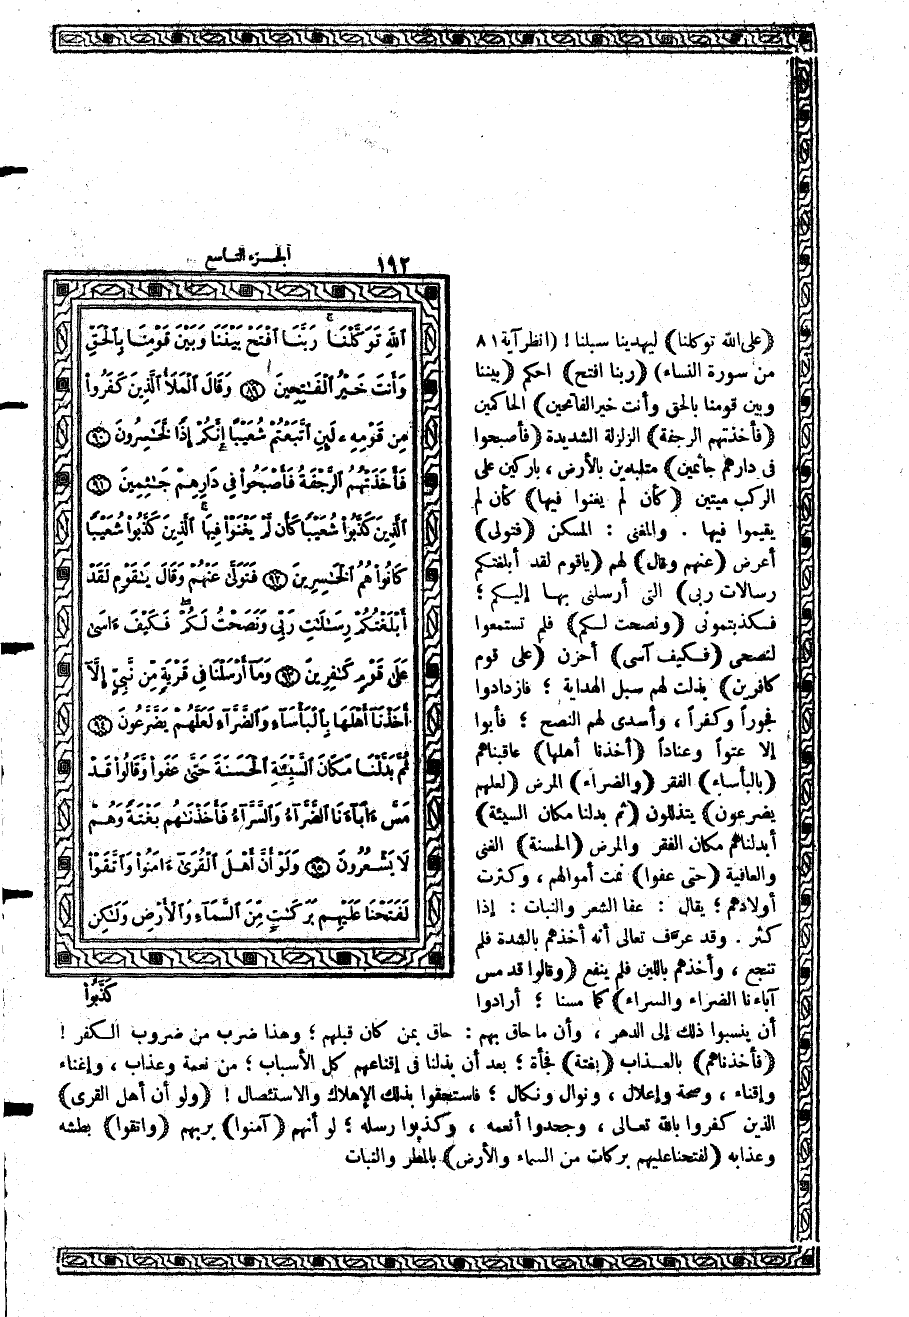 ١٩٢
الجزء التاسع
ٱللَّهِ تَوَكَّلْنَا رَبَّنَا ٱفْتَحْ بَيْنَنَا وَبَيْنَ قَوْمِنَا بِٱلْحَقِّ
وَأَنتَ خَيْرُ ٱلْفَٰتِحِينَ ﴿٨٩﴾ وَقَالَ ٱلْمَلَأُ ٱلَّذِينَ كَفَرُوا۟
مِن قَوْمِهِۦ لَئِنِ ٱتَّبَعْتُمْ شُعَيْبًا إِنَّكُمْ إِذًا لَّخَٰسِرُونَ ﴿٩٠﴾
فَأَخَذَتْهُمُ ٱلرَّجْفَةُ فَأَصْبَحُوا۟ فِى دَارِهِمْ جَٰثِمِينَ ﴿٩١﴾
ٱلَّذِينَ كَذَّبُوا۟ شُعَيْبًا كَأَن لَّمْ يَغْنَوْا۟ فِيهَا ٱلَّذِينَ كَذَّبُوا۟ شُعَيْبًا
كَانُوا۟ هُمُ ٱلْخَٰسِرِينَ ﴿٩٢﴾ فَتَوَلَّىٰ عَنْهُمْ وَقَالَ يَٰقَوْمِ لَقَدْ
أَبْلَغْتُكُمْ رِسَٰلَٰتِ رَبِّى وَنَصَحْتُ لَكُمْ فَكَيْفَ ءَاسَىٰ
عَلَىٰ قَوْمٍ كَٰفِرِينَ ﴿٩٣﴾ وَمَآ أَرْسَلْنَا فِى قَرْيَةٍ مِّن نَّبِىٍّ إِلَّآ
أَخَذْنَآ أَهْلَهَا بِٱلْبَأْسَآءِ وَٱلضَّرَّآءِ لَعَلَّهُمْ يَضَّرَّعُونَ ﴿٩٤﴾
ثُمَّ بَدَّلْنَا مَكَانَ ٱلسَّيِّئَةِ ٱلْحَسَنَةَ حَتَّىٰ عَفَوا۟ وَّقَالُوا۟ قَدْ
مَسَّ ءَابَآءَنَا ٱلضَّرَّآءُ وَٱلسَّرَّآءُ فَأَخَذْنَٰهُم بَغْتَةً وَهُمْ
لَا يَشْعُرُونَ ﴿٩٥﴾ وَلَوْ أَنَّ أَهْلَ ٱلْقُرَىٰٓ ءَامَنُوا۟ وَٱتَّقَوْا۟
لَفَتَحْنَا عَلَيْهِم بَرَكَٰتٍ مِّنَ ٱلسَّمَآءِ وَٱلْأَرْضِ وَلَٰكِن
كَذَّبُوا۟
(على الله توكلنا) ليهدينا سبلنا ! (انظر آية ٨١
من سورة النساء) (ربنا افتح) احكم (بيننا
وبين قومنا بالحق وأنت خير الفاتحين) الحاكمين
(فأخذتهم الرجفة) الزلزلة الشديدة (فأصبحوا
فى دارهم جاثمين) متلبدين بالأرض ، باركين على
الركب ميتين (كأن لم يغنوا فيها) كأن لم
يقيموا فيها . والمغنى : المسكن (فتولى)
أعرض (عنهم وقال) لهم (ياقوم لقد أبلغتكم
رسالات ربى) التى أرسلنى بها إليكم ؛
فكذبتمونى (ونصحت لكم) فلم تستمعوا
لنصحى (فكيف آسى) أحزن (على قوم
كافرين) بذلت لهم سبل الهداية ؛ فازدادوا
فجوراً وكفراً ، وأسدى لهم النصح ؛ فأبوا
إلا عتواً وعناداً (أخذنا أهلها) عاقبناهم
(بالبأساء) الفقر (والضراء) المرض (لعلهم
يضرعون) يتذللون (ثم بدلنا مكان السيئة)
أبدلناهم مكان الفقر والمرض (الحسنة) الغنى
والعافية (حتى عفوا) نمت أموالهم ، وكثرت
أولادهم ؛ يقال : عفا الشعر والنبات : إذا
كثر . وقد عرف تعالى أنه أخذهم بالشدة فلم
تنجع ، وأخذهم باللين فلم ينفع (وقالوا قد مس
آباءنا الضراء والسراء) كما مسنا ؛ أرادوا
أن ينسبوا ذلك إلى الدهر ، وأن ماحاق بهم : حاق بمن كان قبلهم ؛ وهذا ضرب من ضروب الكفر !
(فأخذناهم) بالعذاب (بغتة) فجأة ؛ بعد أن بذلنا فى إقناعهم كل الأسباب ؛ من نعمة وعذاب ، وإغناء
وإقناء ، وصحة وإعلال ، ونوال ونكال ؛ فاستحقوا بذلك الإهلاك والاستئصال ! (ولو أن أهل القرى)
الذين كفروا بالله تعالى ، وجحدوا أنعمه ، وكذبوا رسله ؛ لو أنهم (آمنوا) بربهم (واتقوا) بطشه
وعذابه (لفتحنا عليهم بركات من السماء والأرض) بالمطر والنبات